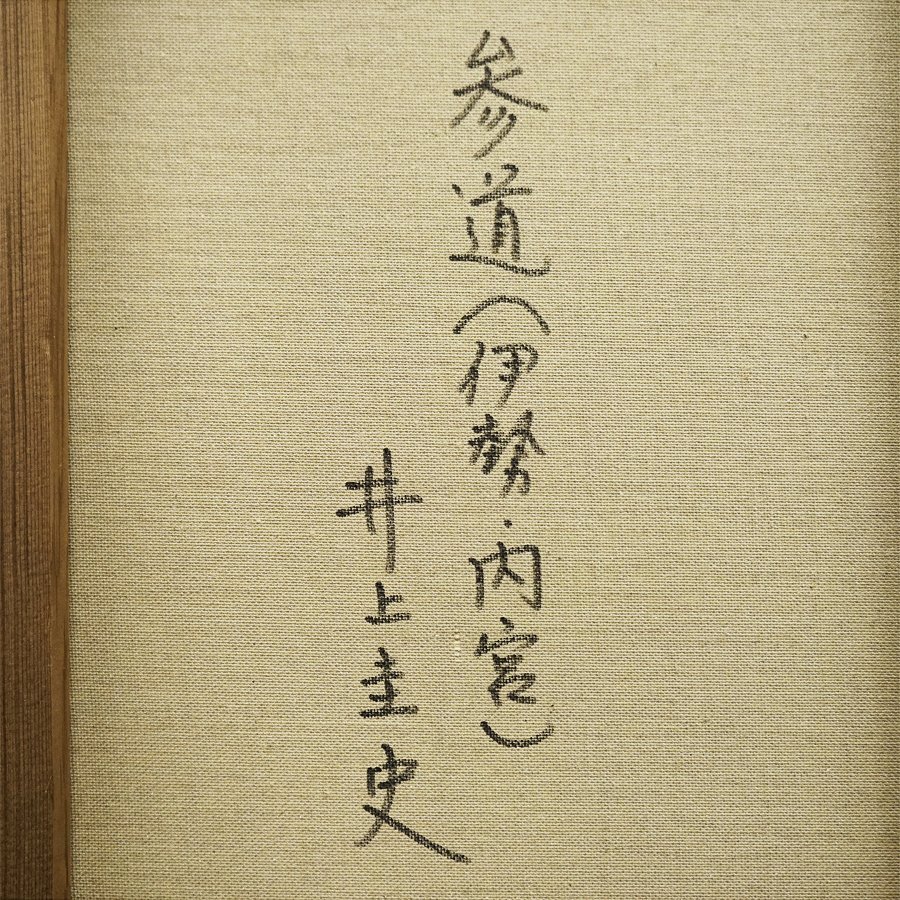 参道(伊勢・内宮)
井上圭史